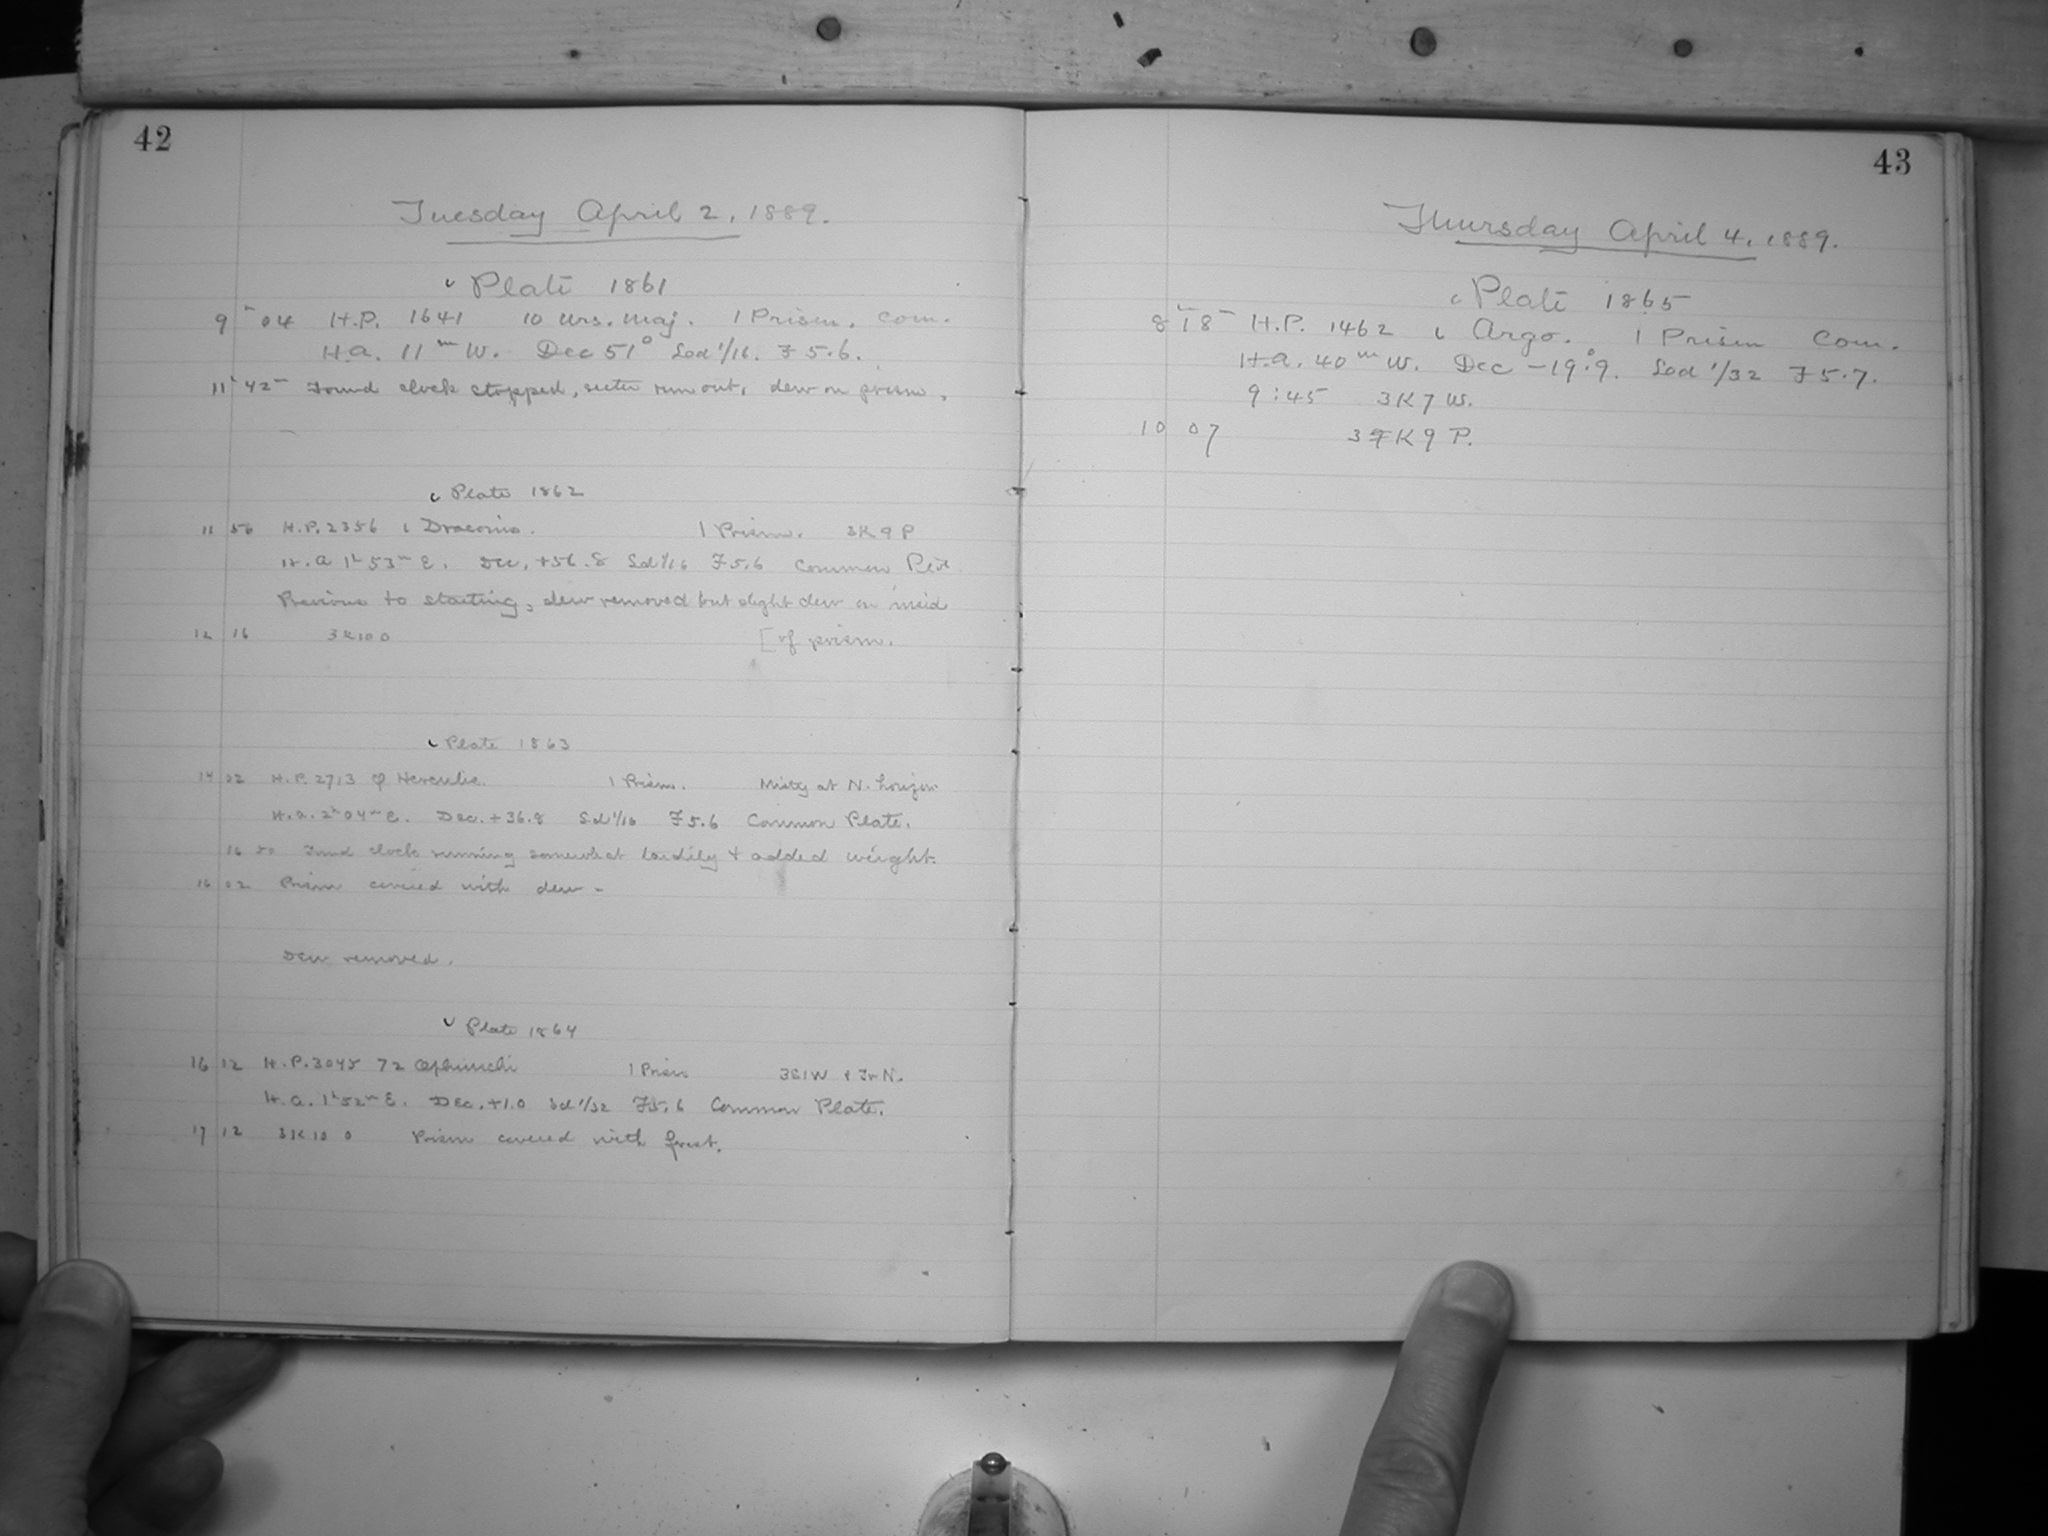 42
Tuesday April 2, 1889.
Plate 1861
9 04 H.P. 1641 10 Urs. Maj. 1 Prism. Com.
H.a. 11 m W. Dec 51° Sed 1/16. F 5.6.
11 h 42 m Found clock stopped, run out, dew on prism.
Plate 1862
11 56 H.P. 2356 ι Draconis. 1 Prism. 3K9P
H.a 1h 53m E. Dec. +56.8 Sed 1/16 F5.6 Common Plate
Previous to starting, dew removed but slight dew on inside
12 16 3K100 [of prism.
Plate 1863
14 02 H.P. 2713 φ Herculis. 1 Prism. Misty at N. horizon
H.a. 2h 04m E. Dec. +36.8 Sed 1/16 F5.6 Common Plate.
Found clock running somewhat tardily + added weight.
16 02 Prism covered with dew -
Dew removed.
Plate 1864
16 12 H.P. 3045 72 Ophiuchi 1 Prism
H.a. 1h 52m E. Dec. +1.0 Sed 1/32 F5.6 Common Plate.
17 12 3K10 0 Prism covered with frost.
43
Thursday April 4, 1889.
Plate 1865
8 18 H.P. 1462 ι Argo. 1 Prism Com.
H.a. 40 m W. Dec -19°.9. Sed 1/32 F 5.7.
9:45 3K7W.
10 07 K9P.